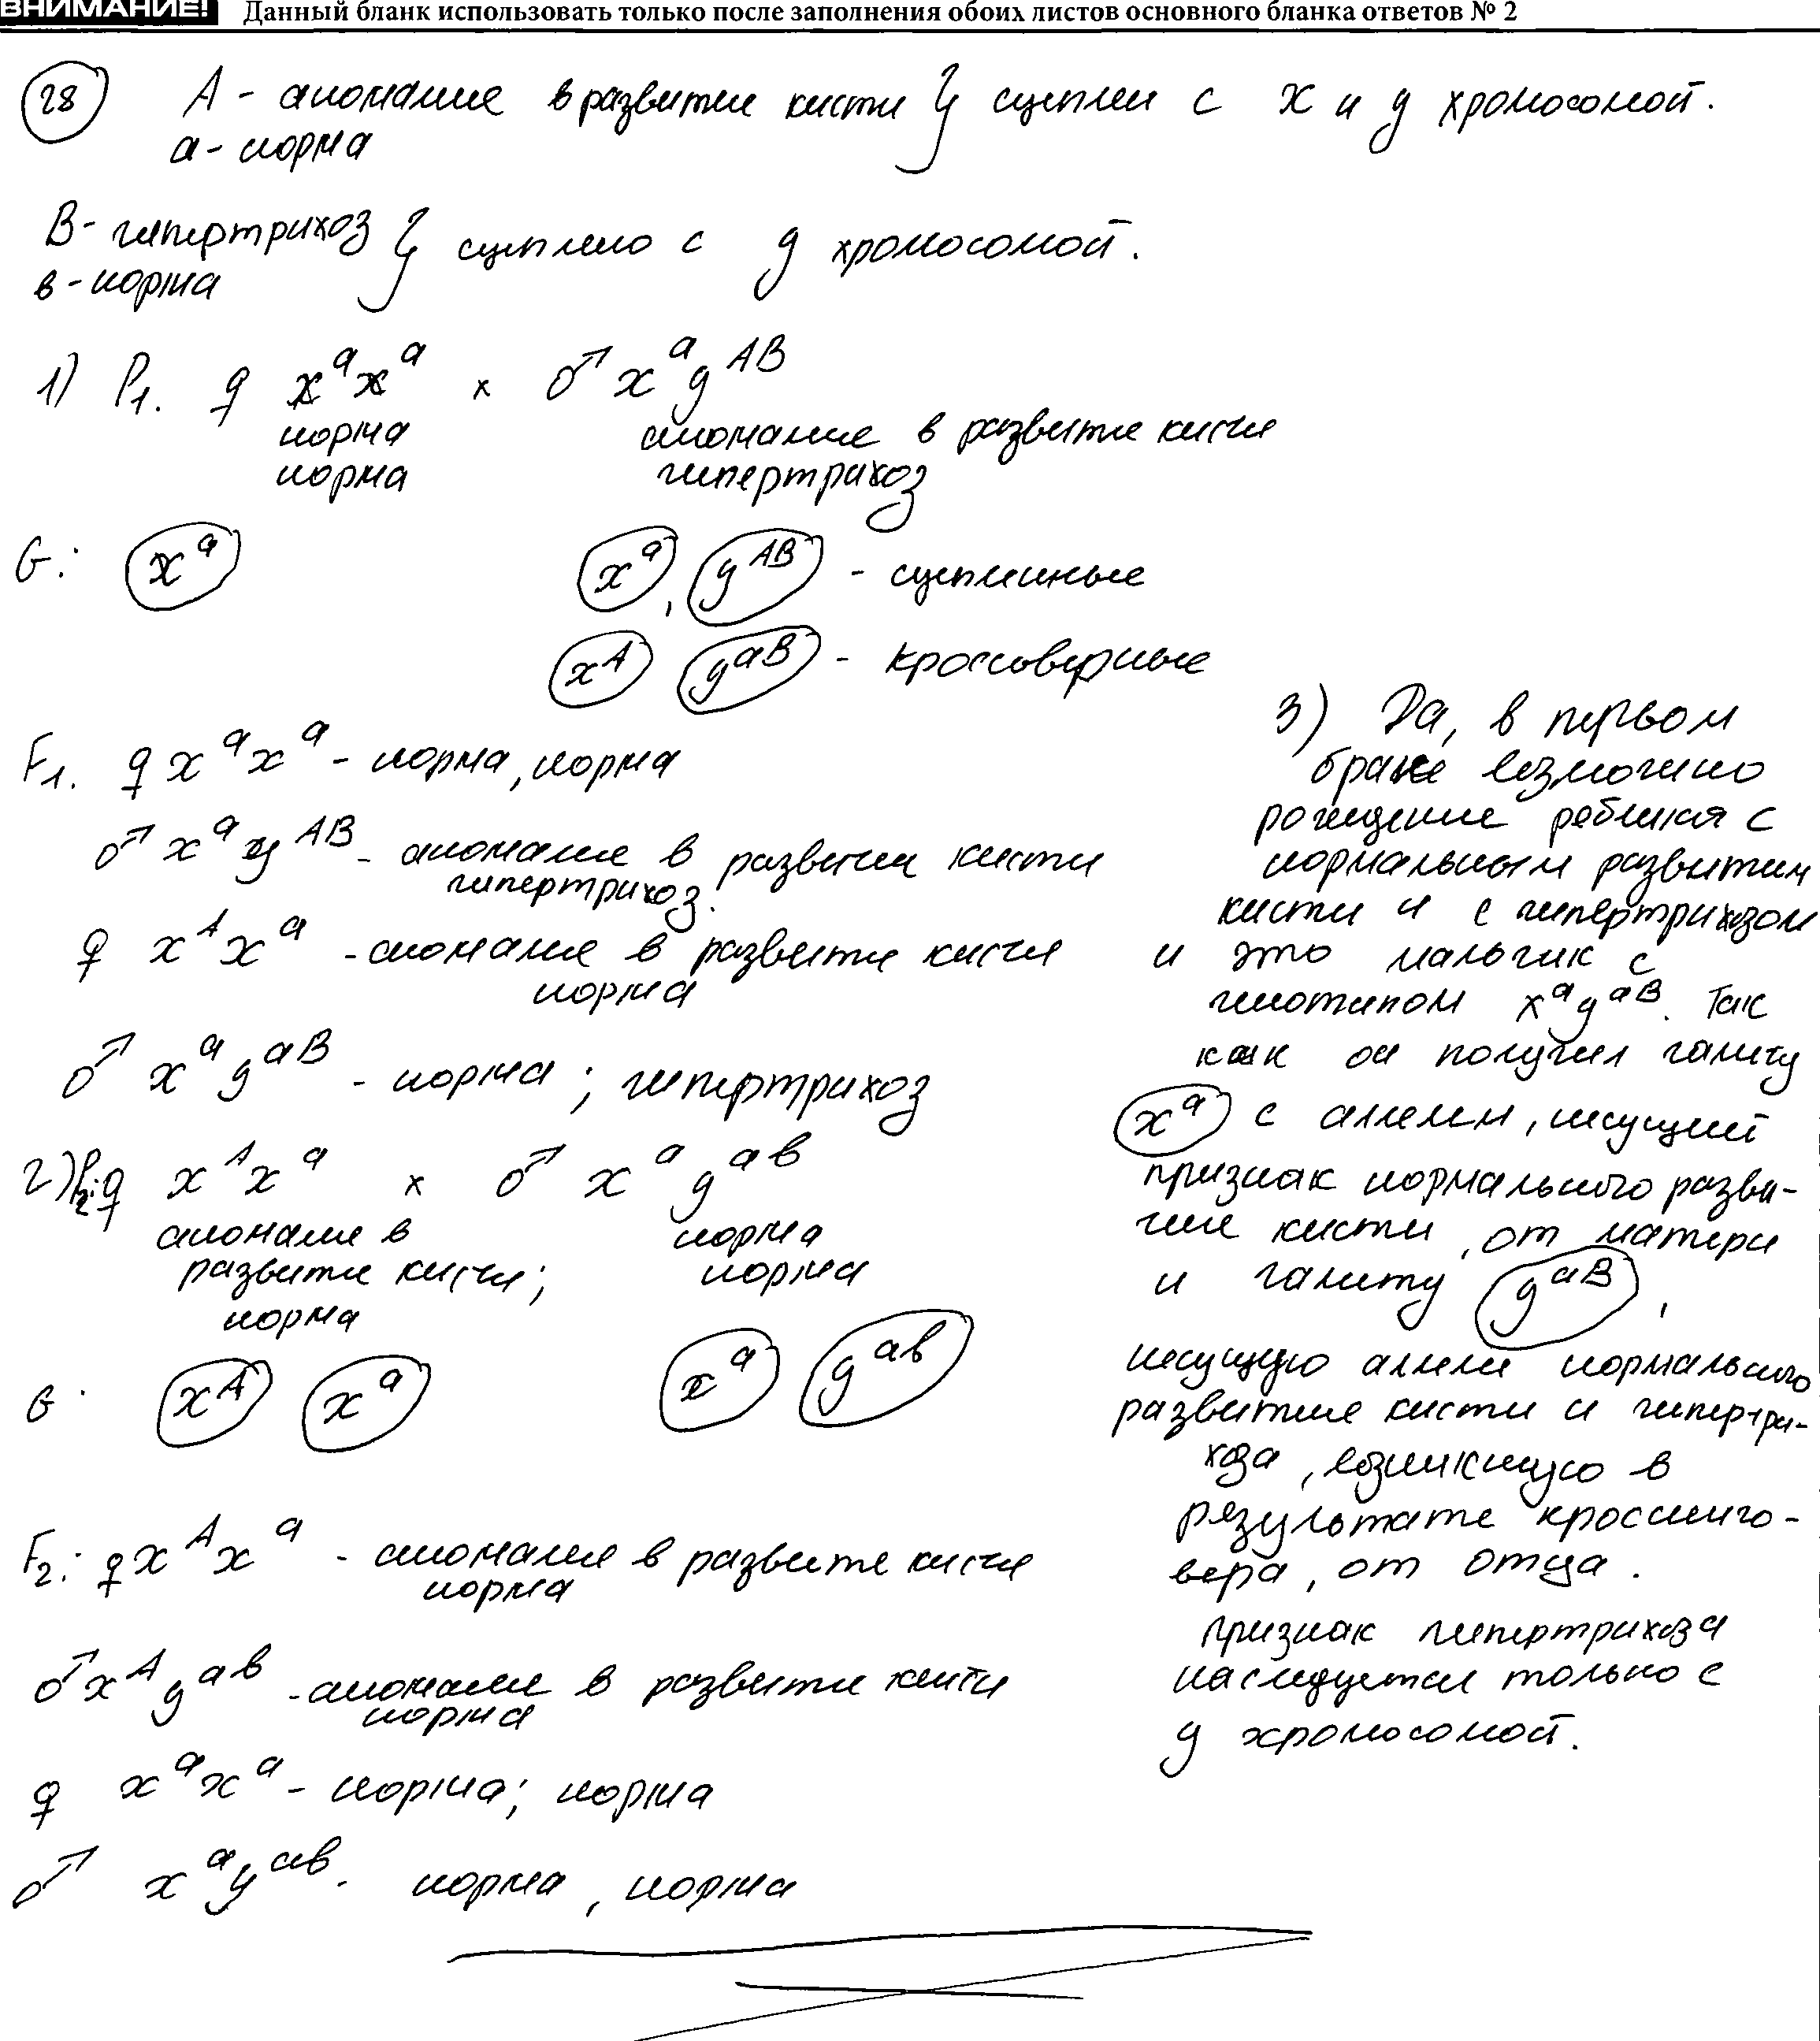 ВНИМАНИЕ! Данный бланк использовать только после заполнения обоих листов основного бланка ответов № 2
28 А - аномалие в развитии кисти } сцеплен с х и у хромосомой.
а - норма
В - гипертрихоз } сцеплено с у хромосомой.
в - норма
1) P1. ♀ xᵃxᵃ × ♂ xᵃyᴬᴮ
норма аномалие в развитие кисти
норма гипертрихоз
G: xᵃ xᵃ, yᴬᴮ - сцеплинные
xᴬ yᵃᴮ - кроссоверные
F1. ♀ xᵃxᵃ - норма, норма
♂ xᵃyᴬᴮ - аномалие в развитии кисти
гипертрихоз.
♀ xᴬxᵃ - аномалие в развитие кисти
норма
♂ xᵃyᵃᴮ - норма; гипертрихоз
2) P2: ♀ xᴬxᵃ × ♂ xᵃyᵃᵇ
аномалие в норма
развитие кисти; норма
норма
G: xᴬ xᵃ xᵃ yᵃᵇ
F2: ♀ xᴬxᵃ - аномалие в развитие кисти
норма
♂ xᴬyᵃᵇ - аномалие в развитии кисти
норма
♀ xᵃxᵃ - норма; норма
♂ xᵃyᵃᵇ. норма, норма
3) Да, в первом
браке возможно
рождение ребенка с
нормальным развитии
кисти и с гипертрихозом
и это мальчик с
генотипом xᵃyᵃᴮ. Так
как он получил гамету
xᵃ с аллели, несущий
признак нормального разви-
тие кисти, от матери
и гамету yᵃᴮ,
несущую аллели нормального
развитие кисти и гипертри-
хоза, возникшую в
результате кроссинго-
вера, от отца.
признак гипертрихоза
наследуется только с
у хромосомой.